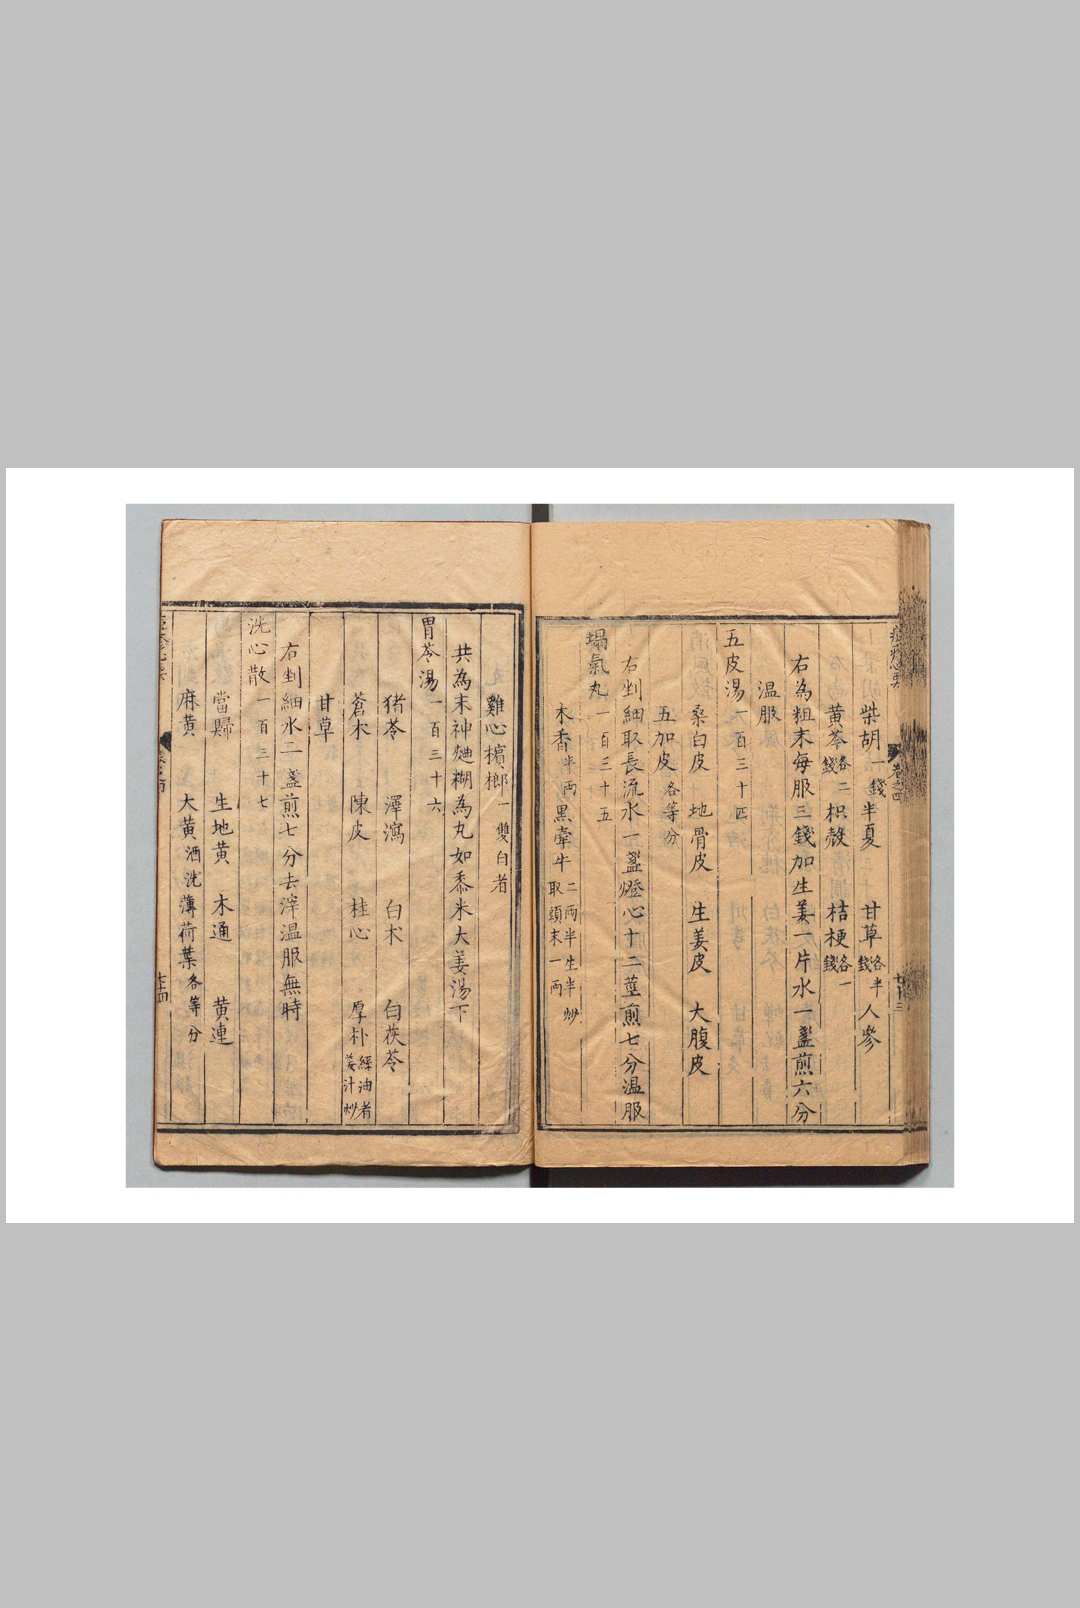 卷之四
柴胡一錢半夏 甘草各半錢人參
黃芩各二錢枳殼 桔梗各一錢
右為粗末每服三錢加生姜一片水一盞煎六分
溫服
五皮湯一百三十四
桑白皮 地骨皮 生姜皮 大腹皮
五加皮各等分
右剉細取長流水一盞燈心十二莖煎七分溫服
塌氣丸一百三十五
木香半兩黑牽牛二兩半生半炒取頭末一兩
雞心檳榔一雙白者
共為末神麯糊為丸如黍米大姜湯下
胃苓湯一百三十六
猪苓 澤瀉 白朮 白茯苓
蒼朮 陳皮 桂心 厚朴經油者姜汁炒
甘草
右剉細水二盞煎七分去滓溫服無時
洗心散一百三十七
當歸 生地黃 木通 黃連
麻黃 大黃酒洗薄荷葉各等分